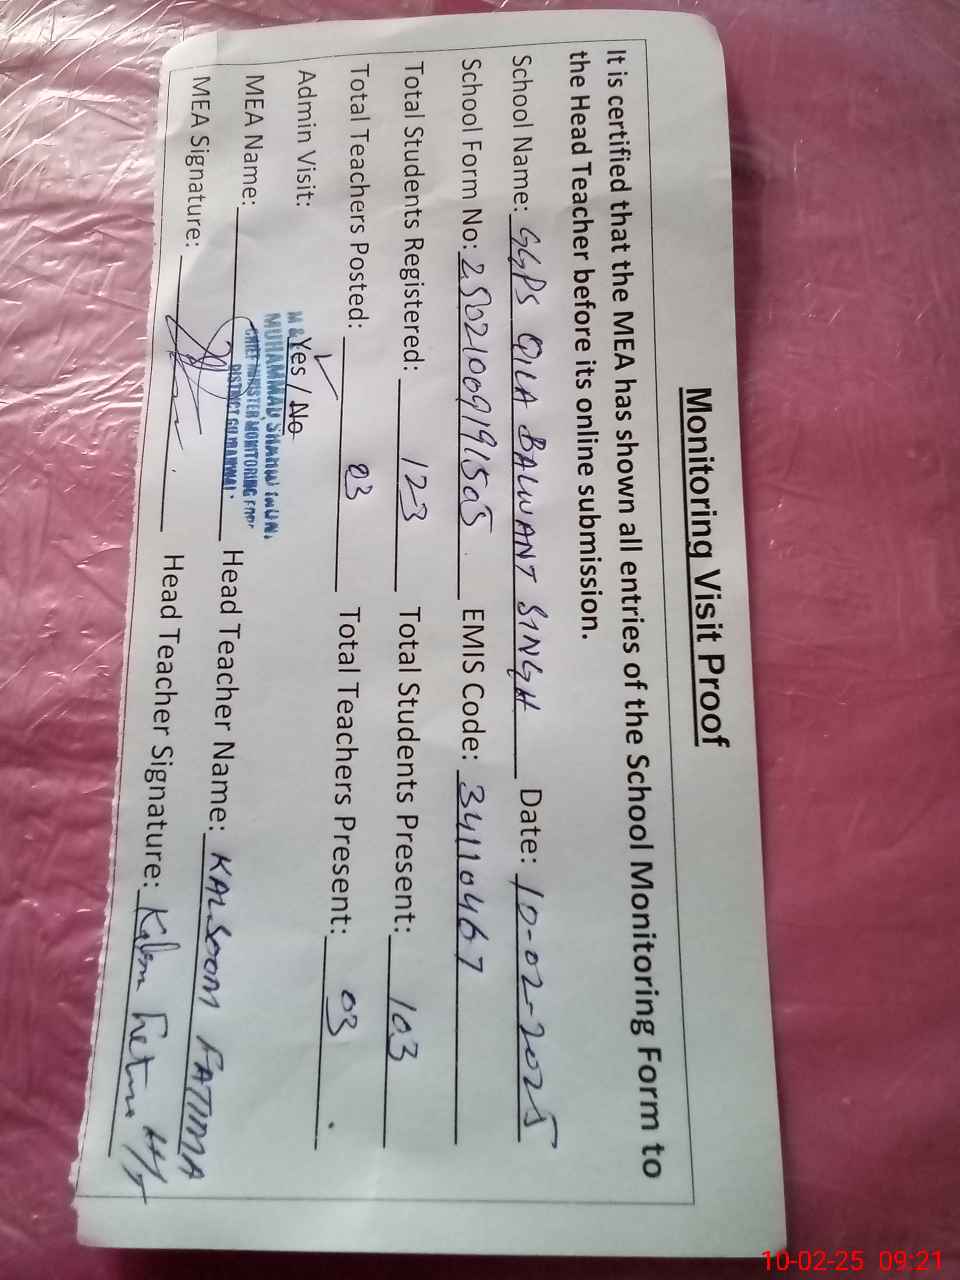 Monitoring Visit Proof
It is certified that the MEA has shown all entries of the School Monitoring Form to
the Head Teacher before its online submission.
School Name: GGPS QILA BALWANT SINGH Date: 10-02-2025
School Form No: 25021009191505 EMIS Code: 34110467
Total Students Registered: 123 Total Students Present: 103
Total Teachers Posted: 03 Total Teachers Present: 03
Admin Visit: Yes / No
MEA Name: MUHAMMAD CHIEF MINISTER MONITORING DISTRICT Head Teacher Name: KALSOOM FATIMA
MEA Signature: Head Teacher Signature:
10-02-25 09:21